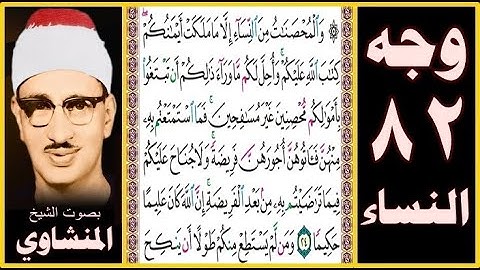 وجه
٨٢
النساء
۞ وَٱلْمُحْصَنَٰتُ مِنَ ٱلنِّسَآءِ إِلَّا مَا مَلَكَتْ أَيْمَٰنُكُمْ ۖ
كِتَٰبَ ٱللَّهِ عَلَيْكُمْ ۚ وَأُحِلَّ لَكُم مَّا وَرَآءَ ذَٰلِكُمْ أَن تَبْتَغُوا۟
بِأَمْوَٰلِكُم مُّحْصِنِينَ غَيْرَ مُسَٰفِحِينَ ۚ فَمَا ٱسْتَمْتَعْتُم بِهِۦ
مِنْهُنَّ فَـَٔاتُوهُنَّ أُجُورَهُنَّ فَرِيضَةً ۚ وَلَا جُنَاحَ عَلَيْكُمْ
فِيمَا تَرَٰضَيْتُم بِهِۦ مِنۢ بَعْدِ ٱلْفَرِيضَةِ ۚ إِنَّ ٱللَّهَ كَانَ عَلِيمًا
حَكِيمًا ٢٤ وَمَن لَّمْ يَسْتَطِعْ مِنكُمْ طَوْلًا أَن يَنكِحَ
بصوت الشيخ
المنشاوي